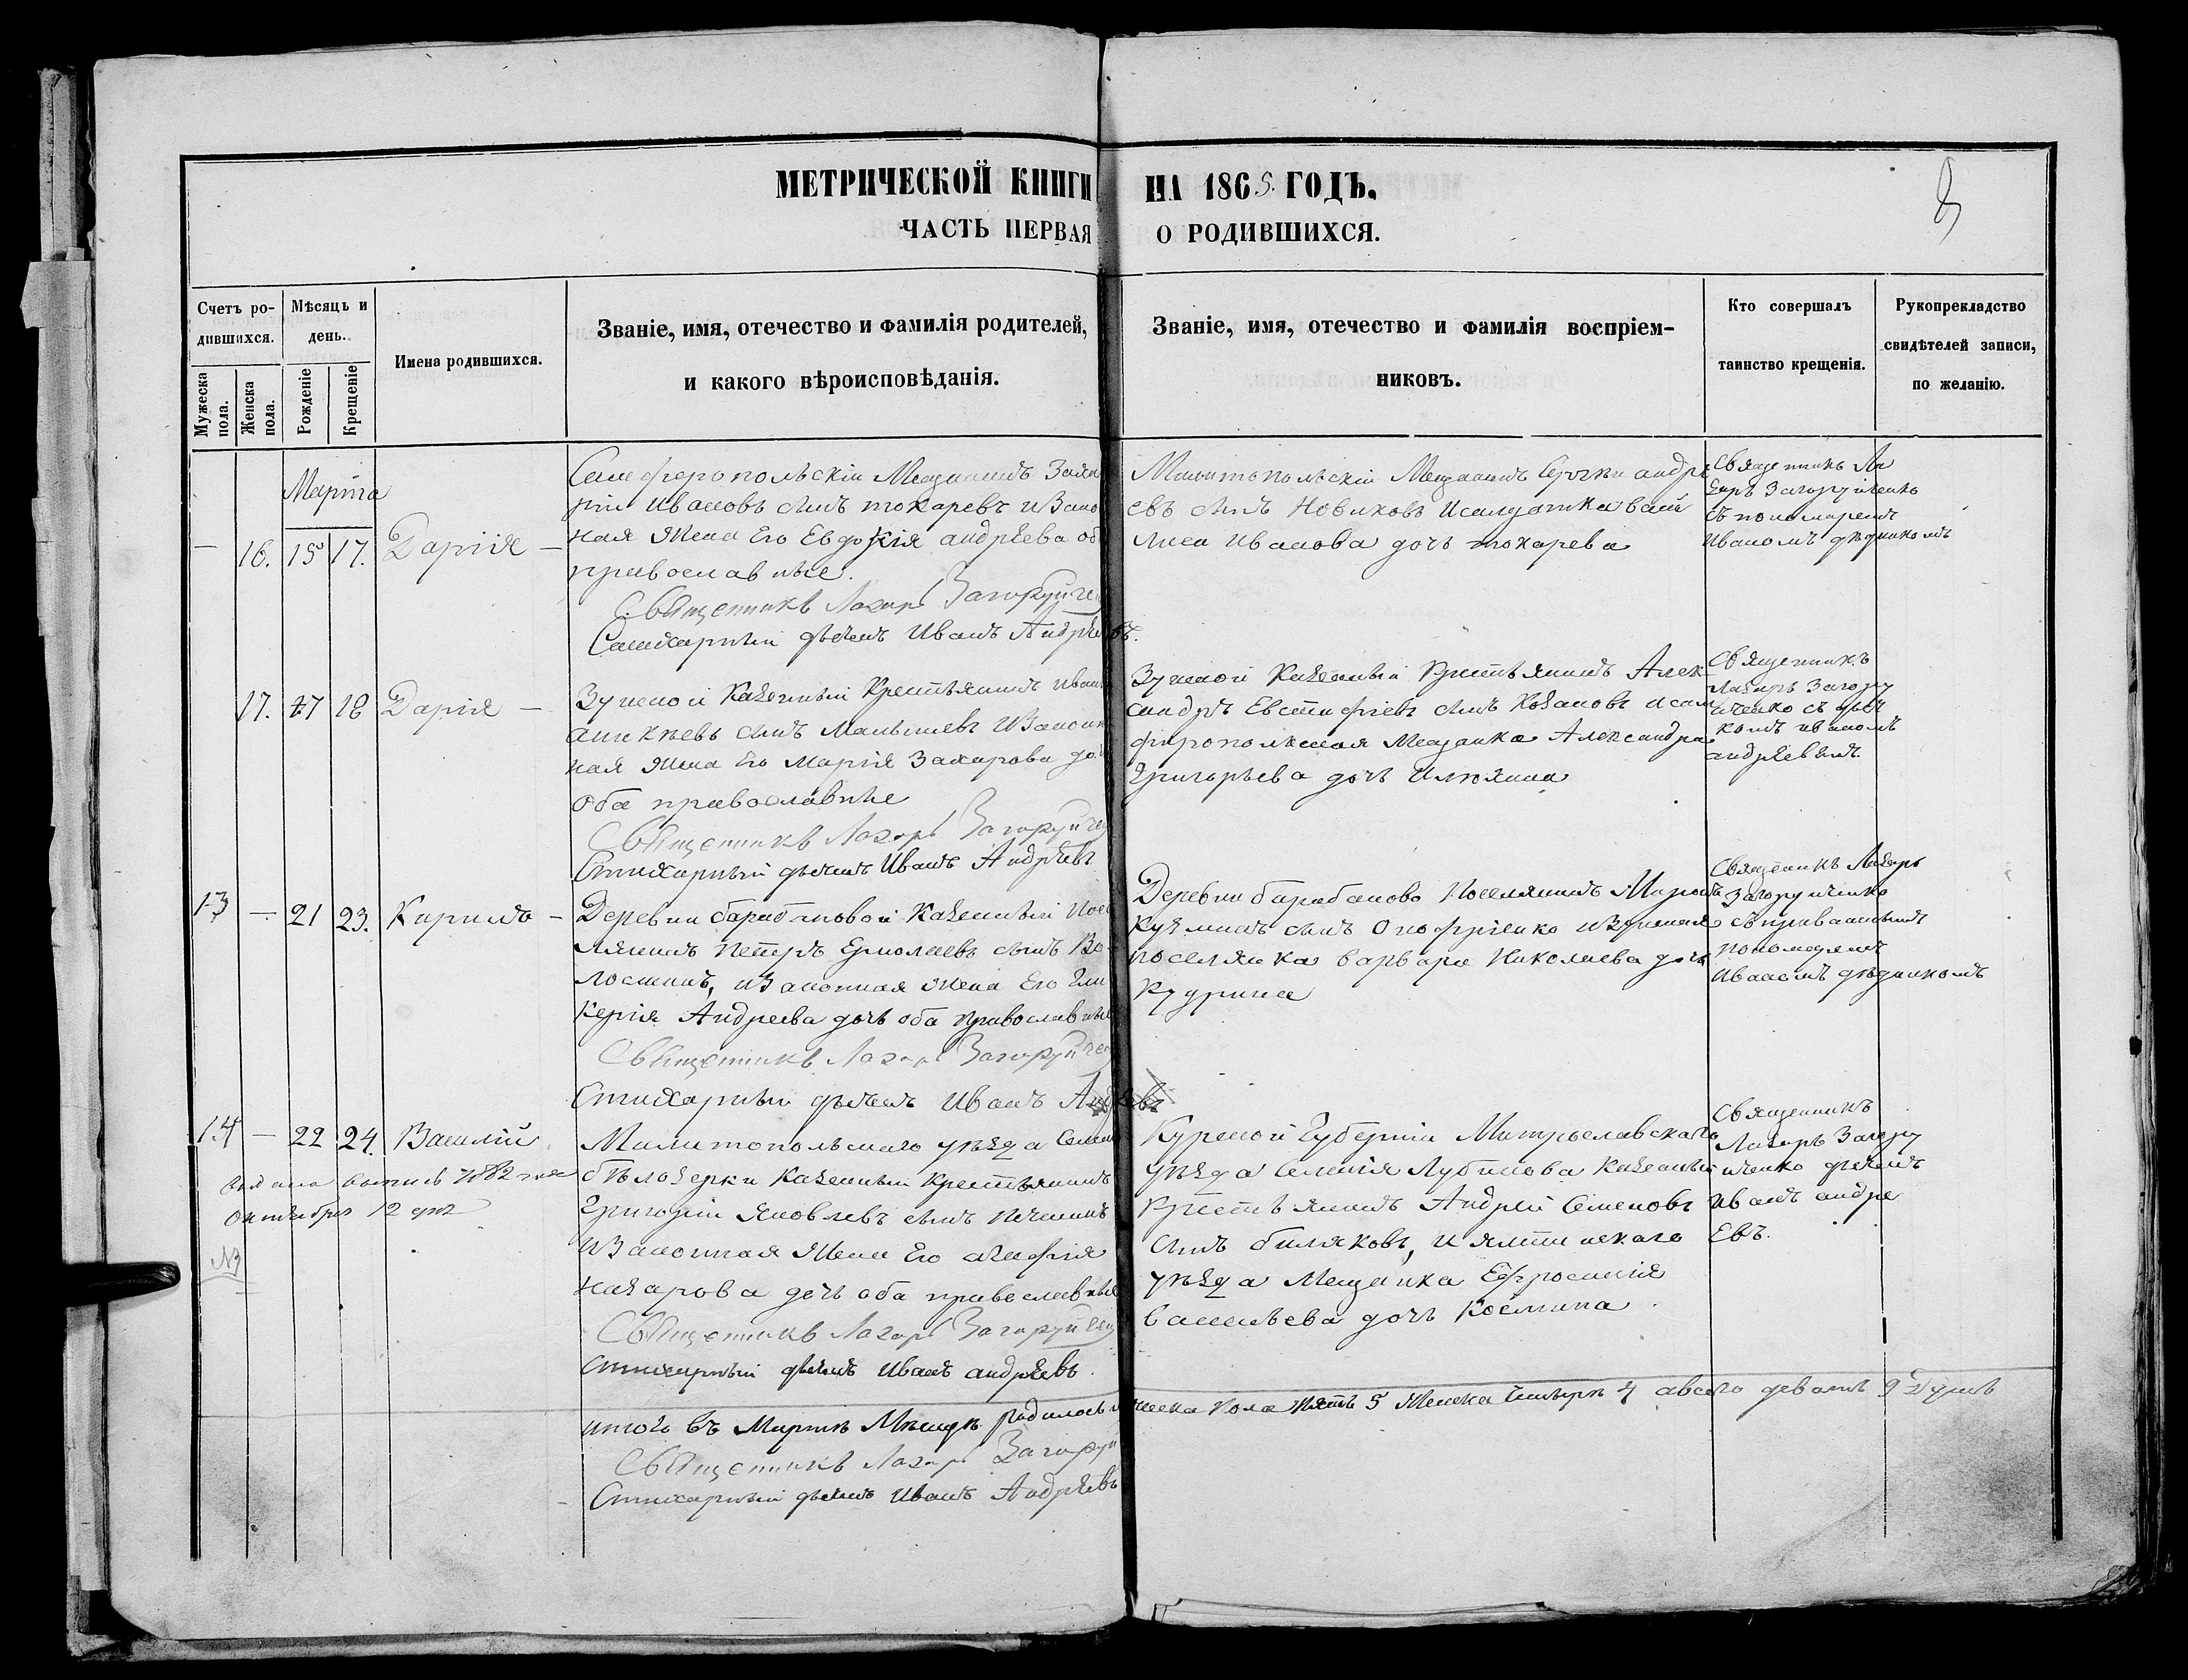 МЕТРИЧЕСКОЙ КНИГИ НА 1865 ГОДЪ.
8
ЧАСТЬ ПЕРВАЯ О РОДИВШИХСЯ.
Счетъ ро-
дившихся.
Мужеска пола.
Женска пола.
Мѣсяцъ и
день.
Рожденіе
Крещеніе
Имена родившихся.
Званіе, имя, отечество и фамилія родителей,
и какого вѣроисповѣданія.
Званіе, имя, отечество и фамилія воспріем-
никовъ.
Кто совершалъ
таинство крещенія.
Рукоприкладство
свидѣтелей записи,
по желанію.
Марта
— 16. 15 17. Дарія —
Симферопольскій Мещанинъ Заха
рій Ивановъ сынъ токаревъ и Зако
ная Жена Его Евдокія андрѣева об
православные.
Священникъ Лазарь Загоруйче
Стихарный дьячекъ Иванъ Андрѣевъ.
Мелитопольскій Мещанинъ андре
евъ сынъ Новиковъ
Иванова дочь токарева
Священникъ Ла
зарь Загоруйченко
съ пономаремъ
Иваномъ дѣдниковъ
17. 17 18 Дарія —
Казенный Крестьянинъ Иванъ
сынъ и Законн
ная Жена Его Марія Захарова до
Оба православные
Священникъ Лазарь Загоруйче
Стихарный дьячекъ Иванъ Андрѣевъ
Казенный Крестьянинъ Алек
сандръ Евстафіевъ сынъ Козановъ и сим
фиропольская Мещанка Александра
Григорьева дочь Илюхина
Священникъ
Лазарь Загору
йченко съ дьяч
комъ иваномъ
андрѣевымъ
13 — 21 23. Кирилъ —
Деревни барабановой Казенный Посе
лянинъ Петръ Ермолаевъ сынъ Во
лошинъ, и Законная Жена Его Гли
керія Андреева дочь оба православные
Священникъ Лазарь Загоруйче
Стихарный дьячекъ Иванъ Андрѣевъ
Деревни барабаново Поселянинъ Миронъ
Кузминъ сынъ Онофріенко
поселянка варвара Николаева дочь
Кудрина
Священникъ Лазарь
Загоруйченко
съ
пономаремъ
Иваномъ дѣдникомъ
14 — 22 24. Василій
октября 12 дня
№3
Мелитопольскаго уѣзда Селен
бѣлозерки Казенный Крестьянинъ
Григорій Яковлевъ сынъ
и Законная Жена Его агафія
назарова дочь оба православные
Священникъ Лазарь Загоруйче
Стихарный дьячекъ Иванъ андрѣевъ
Курской Губерніи
уѣзда Селенія Казенный
Крестьянинъ Андрей Семеновъ
сынъ биляковъ, и ялтинскаго
уѣзда Мещанка Ефросинія
васильева дочь Косьмина
Священникъ
Лазарь Загору
йченко дьячекъ
Иванъ андре
Евъ.
итого въ Мартѣ Мѣсяцѣ родилось мужеска пола пять 5 Женска Четыре 4 а всего девять 9 Душъ
Священникъ Лазарь Загоруй
Стихарный дьячекъ Иванъ Андрѣевъ